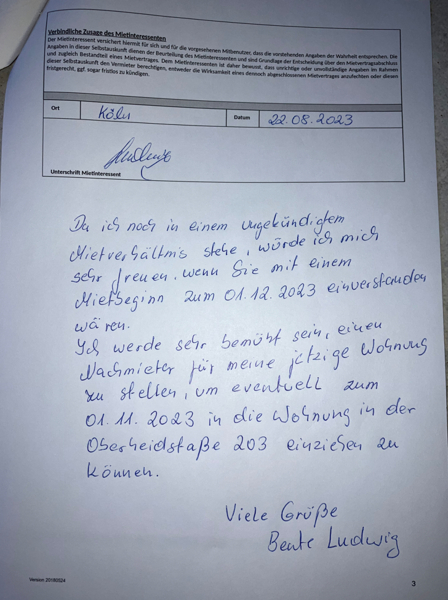 Verbindliche Zusage des Mietinteressenten
Der Mietinteressent versichert hiermit für sich und für die vorgesehenen Mitbenutzer, dass die vorstehenden Angaben der Wahrheit entsprechen. Die
Angaben in dieser Selbstauskunft dienen der Beurteilung des Mietinteressenten und sind Grundlage der Entscheidung über den Mietvertragsabschluss
und zugleich Bestandteil eines Mietvertrages. Dem Mietinteressenten ist daher bewusst, dass unrichtige oder unvollständige Angaben im Rahmen
dieser Selbstauskunft den Vermieter berechtigen, entweder die Wirksamkeit eines dennoch abgeschlossenen Mietvertrages anzufechten oder diesen
fristgerecht, ggf. sogar fristlos zu kündigen.
Ort Köln Datum 22.08.2023
Unterschrift Mietinteressent
Da ich noch in einem ungekündigtem
Mietverhältnis stehe, würde ich mich
sehr freuen, wenn Sie mit einem
Mietbeginn zum 01.12.2023 einverstanden
wären.
Ich werde sehr bemüht sein, einen
Nachmieter für meine jetzige Wohnung
zu stellen, um eventuell zum
01.11.2023 in die Wohnung in der
Oberheidstaße 203 einziehen zu
können.
Viele Grüße
Beate Ludwig
Version 20180524
3